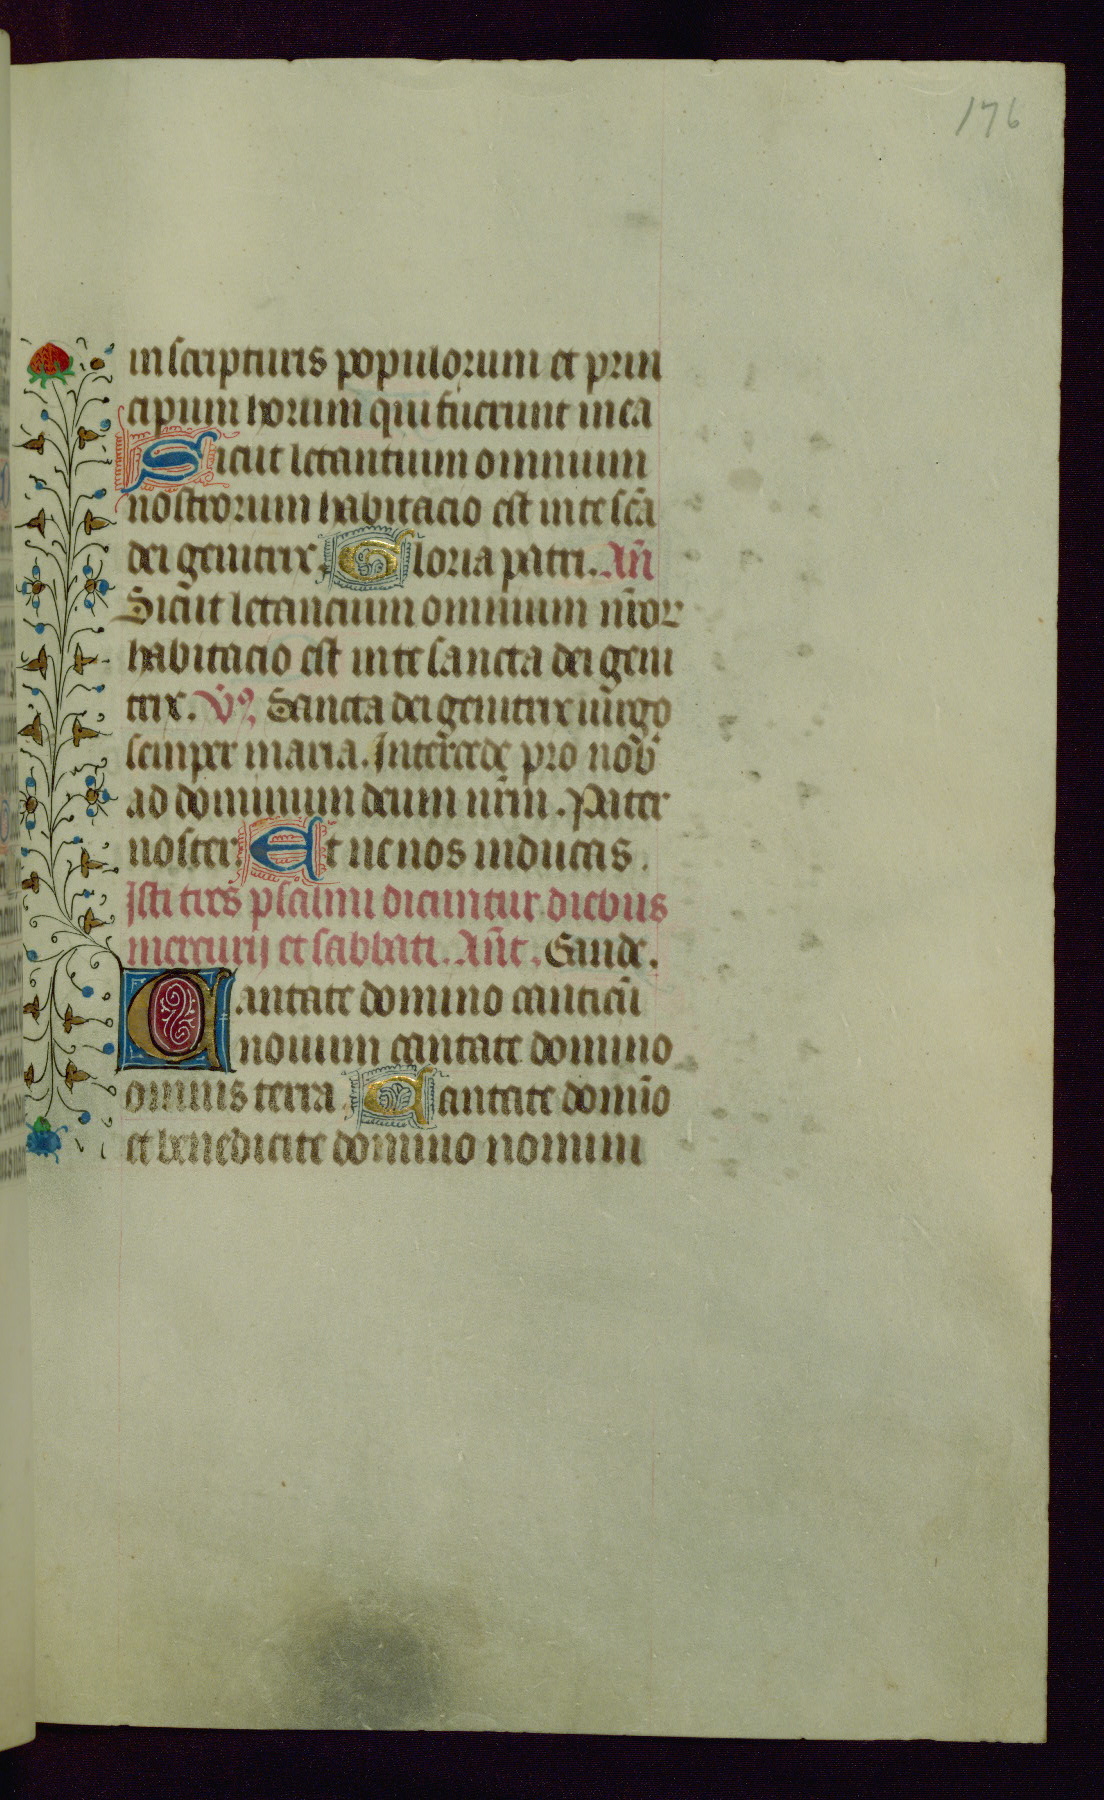 176
in scripturis populorum et prin
cipum horum qui fuerunt in ea
Sicut letantium omnium
nostrorum habitacio est in te scā
dei genitrix. Gloria patri. Añ
Sicut letancium omnium nr̄or
habitacio est in te sancta dei geni
trix. V̄ꝰ. Sancta dei genitrix uirgo
semper maria. Intercede pro nob̄
ad dominum deum nr̄m. Pater
noster. Et ne nos inducas.
Isti tres psalmi dicuntur diebus
mercurij et sabbati. Añt. Gaude.
Cantate domino canticū
nouum cantate domino
omnis terra. Cantate domīo
et benedicite domino nomini